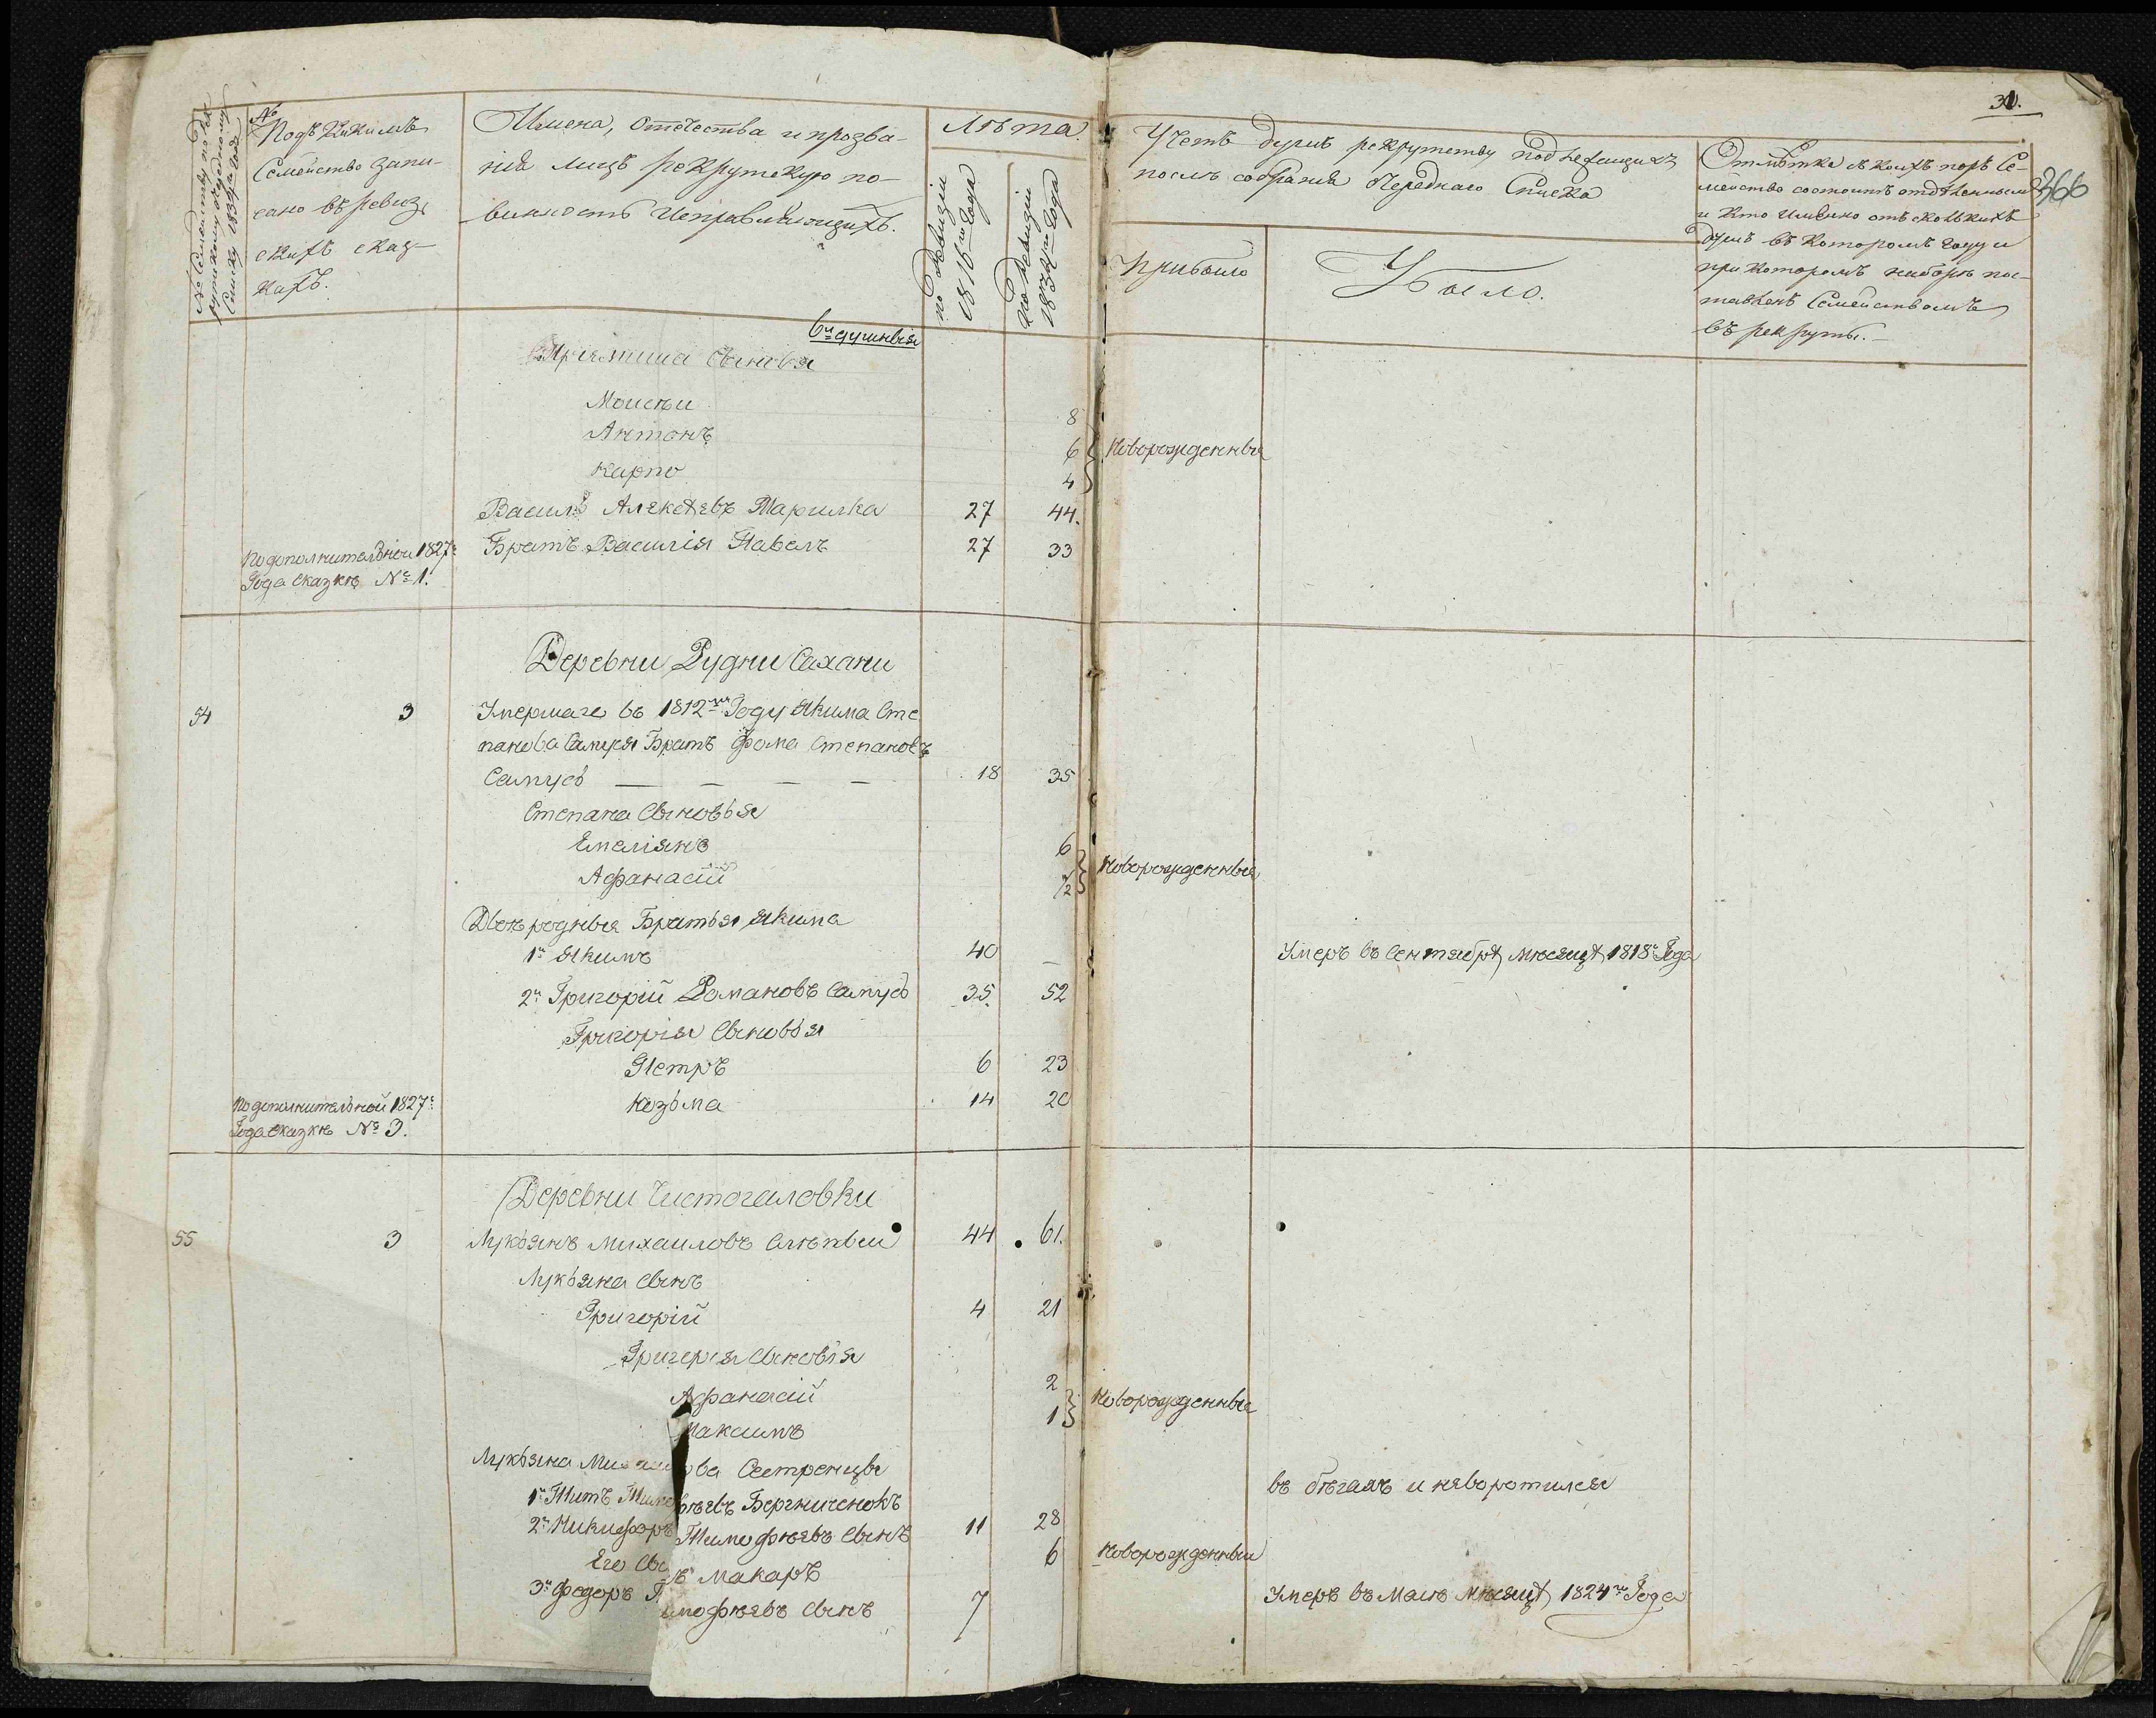 31.
366
№ Семейству по ре-
крутскому очередному
Списку 1832го Года
№
Подъ какимъ
Семейство запи-
сано въ ревизс
скихъ сказ-
кахъ.
Имена, Отечества и прозва-
нія лицъ рекрутскую по-
винность исправляющихъ.
Лѣта
по Ревизіи
1816го Года
по Ревизіи
1834го Года
Учетъ душъ рекрутству подлежащихъ
послѣ собранія Очереднаго Списка
Прибыло
Убыло.
Отмѣтка съ коихъ поръ Се-
мейство состоитъ отдѣленнымъ
и кто именно отъ сколькихъ
душъ въ которомъ году и
при которомъ наборѣ пос-
тавленъ Семействомъ
въ рекруты.
6и душныя
Сыновья
Моисѣи 8
Антонъ 6 Новорожденныя
Карпо 4
Василь Алексѣевъ Марилка 27 44.
По дополнительной 1827го Братъ Василія Павелъ 27 33
Года сказкѣ № 1.
Деревни Рудни Сахани
54 3 Умершаго въ 1812мъ Году Якима Сте
панова Сапуся Братъ Фома Степановъ
Сапусь — — — — 18 35
Степана Сыновья
Емеліянъ 6
Афанасій 1/2 Новорожденныя
Двоюродныя Братья Якима
1й Якимъ 40 — Умеръ въ Сентябрѣ мѣсяцѣ 1818го Года
2й Григорій Романовъ Сапусь 35. 52
Григорія Сыновья
Петръ 6 23
По дополнительной 1827го Козьма 14 20
Года сказкѣ № 3.
Деревни Чистогаловки
55 3 Лукьянъ Михаиловъ Слѣпыи 44 61.
Лукьяна Сынъ
Григорій 4 21
Григорія Сыновья
Афанасій 2 Новорожденныя
Максимъ 1
Лукьяна Ми ва Сестренцы
1й Титъ Тимо ѣевъ въ бѣгахъ и неворотился
2й Никифоръ Тимофѣевъ Сынъ 11 28
Его Сы ъ Макаръ 6 Новорожденныи
3й Федоръ Т имофѣевъ Сынъ 7 Умеръ въ Маѣ мѣсяцѣ 1824го Года